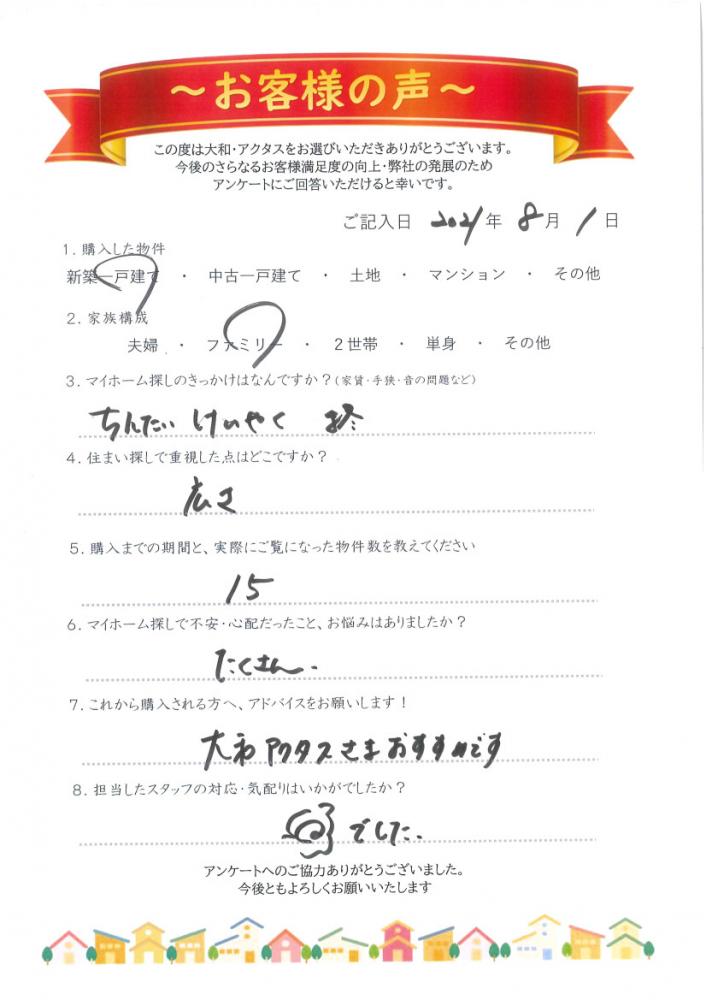 ～お客様の声～
この度は大和・アクタスをお選びいただきありがとうございます。
今後のさらなるお客様満足度の向上・弊社の発展のため
アンケートにご回答いただけると幸いです。
ご記入日 2021年 8月 1日
1．購入した物件
新築一戸建て ・ 中古一戸建て ・ 土地 ・ マンション ・ その他
2．家族構成
夫婦 ・ ファミリー ・ 2世帯 ・ 単身 ・ その他
3．マイホーム探しのきっかけはなんですか？(家賃・手狭・音の問題など)
ちんたい けいやく 終
4．住まい探しで重視した点はどこですか？
広さ
5．購入までの期間と、実際にご覧になった物件数を教えてください
15
6．マイホーム探しで不安・心配だったこと、お悩みはありましたか？
たくさん．
7．これから購入される方へ、アドバイスをお願いします！
大和アクタスさまおすすめです
8．担当したスタッフの対応・気配りはいかがでしたか？
でした．
アンケートへのご協力ありがとうございました。
今後ともよろしくお願いいたします